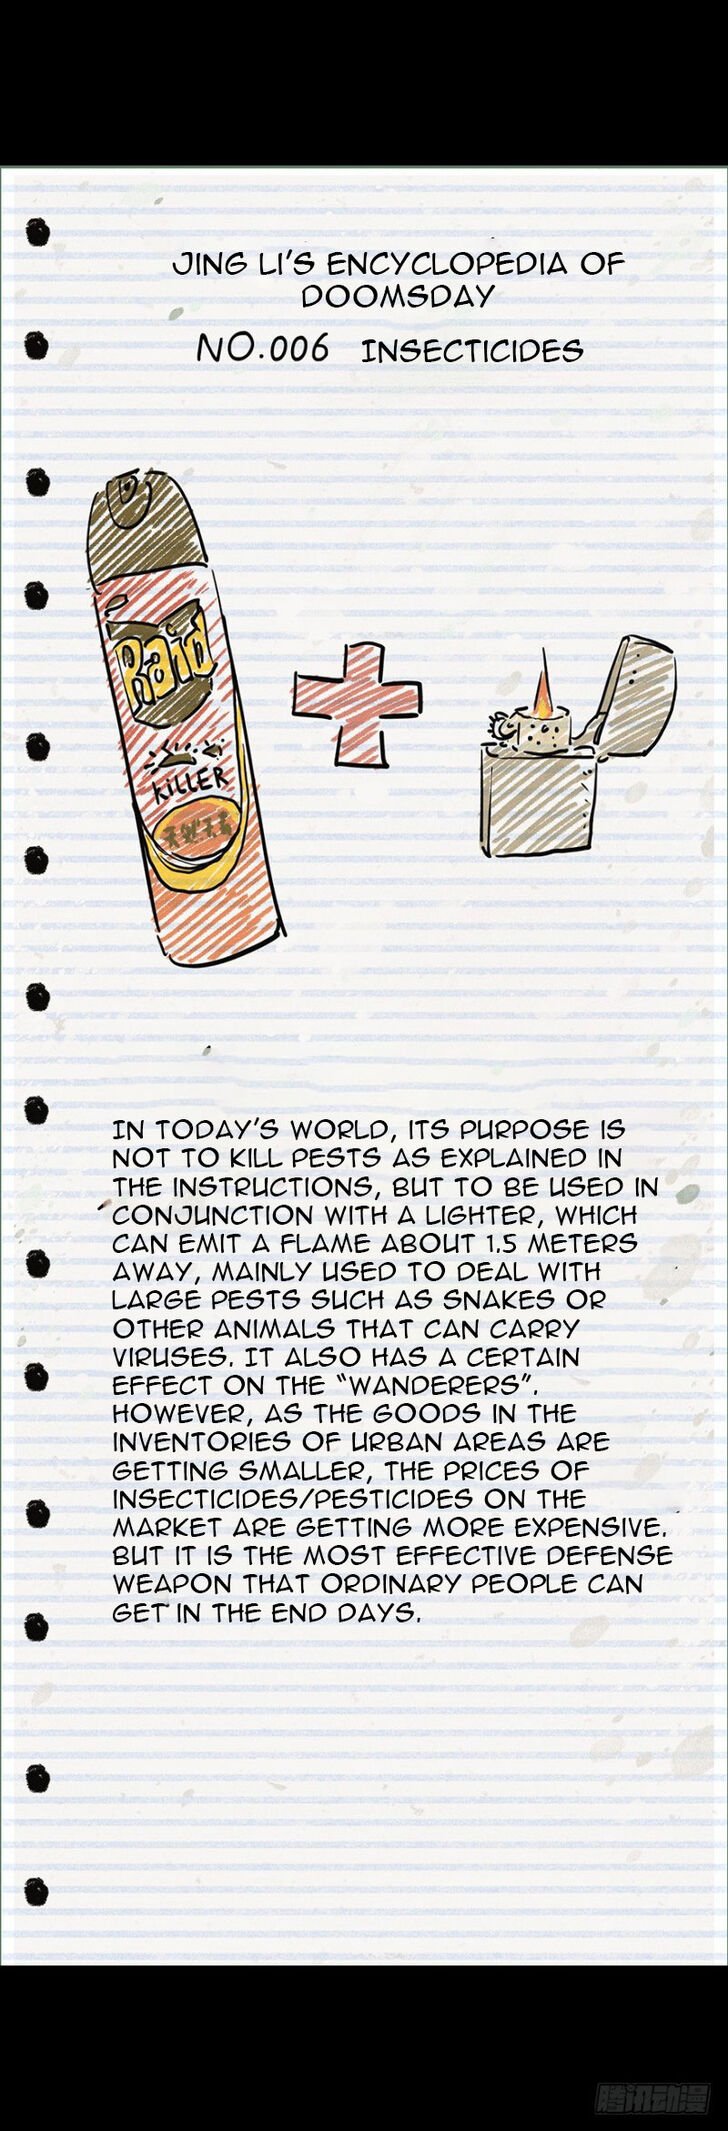 JING LI'S ENCYCLOPEDIA OF
DOOMSDAY
NO.006 INSECTICIDES
Raid
KILLER
IN TODAY'S WORLD, ITS PURPOSE IS
NOT TO KILL PESTS AS EXPLAINED IN
THE INSTRUCTIONS, BUT TO BE USED IN
CONJUNCTION WITH A LIGHTER, WHICH
CAN EMIT A FLAME ABOUT 1.5 METERS
AWAY, MAINLY USED TO DEAL WITH
LARGE PESTS SUCH AS SNAKES OR
OTHER ANIMALS THAT CAN CARRY
VIRUSES. IT ALSO HAS A CERTAIN
EFFECT ON THE "WANDERERS".
HOWEVER, AS THE GOODS IN THE
INVENTORIES OF URBAN AREAS ARE
GETTING SMALLER, THE PRICES OF
INSECTICIDES/PESTICIDES ON THE
MARKET ARE GETTING MORE EXPENSIVE.
BUT IT IS THE MOST EFFECTIVE DEFENSE
WEAPON THAT ORDINARY PEOPLE CAN
GET IN THE END DAYS.
腾讯动漫